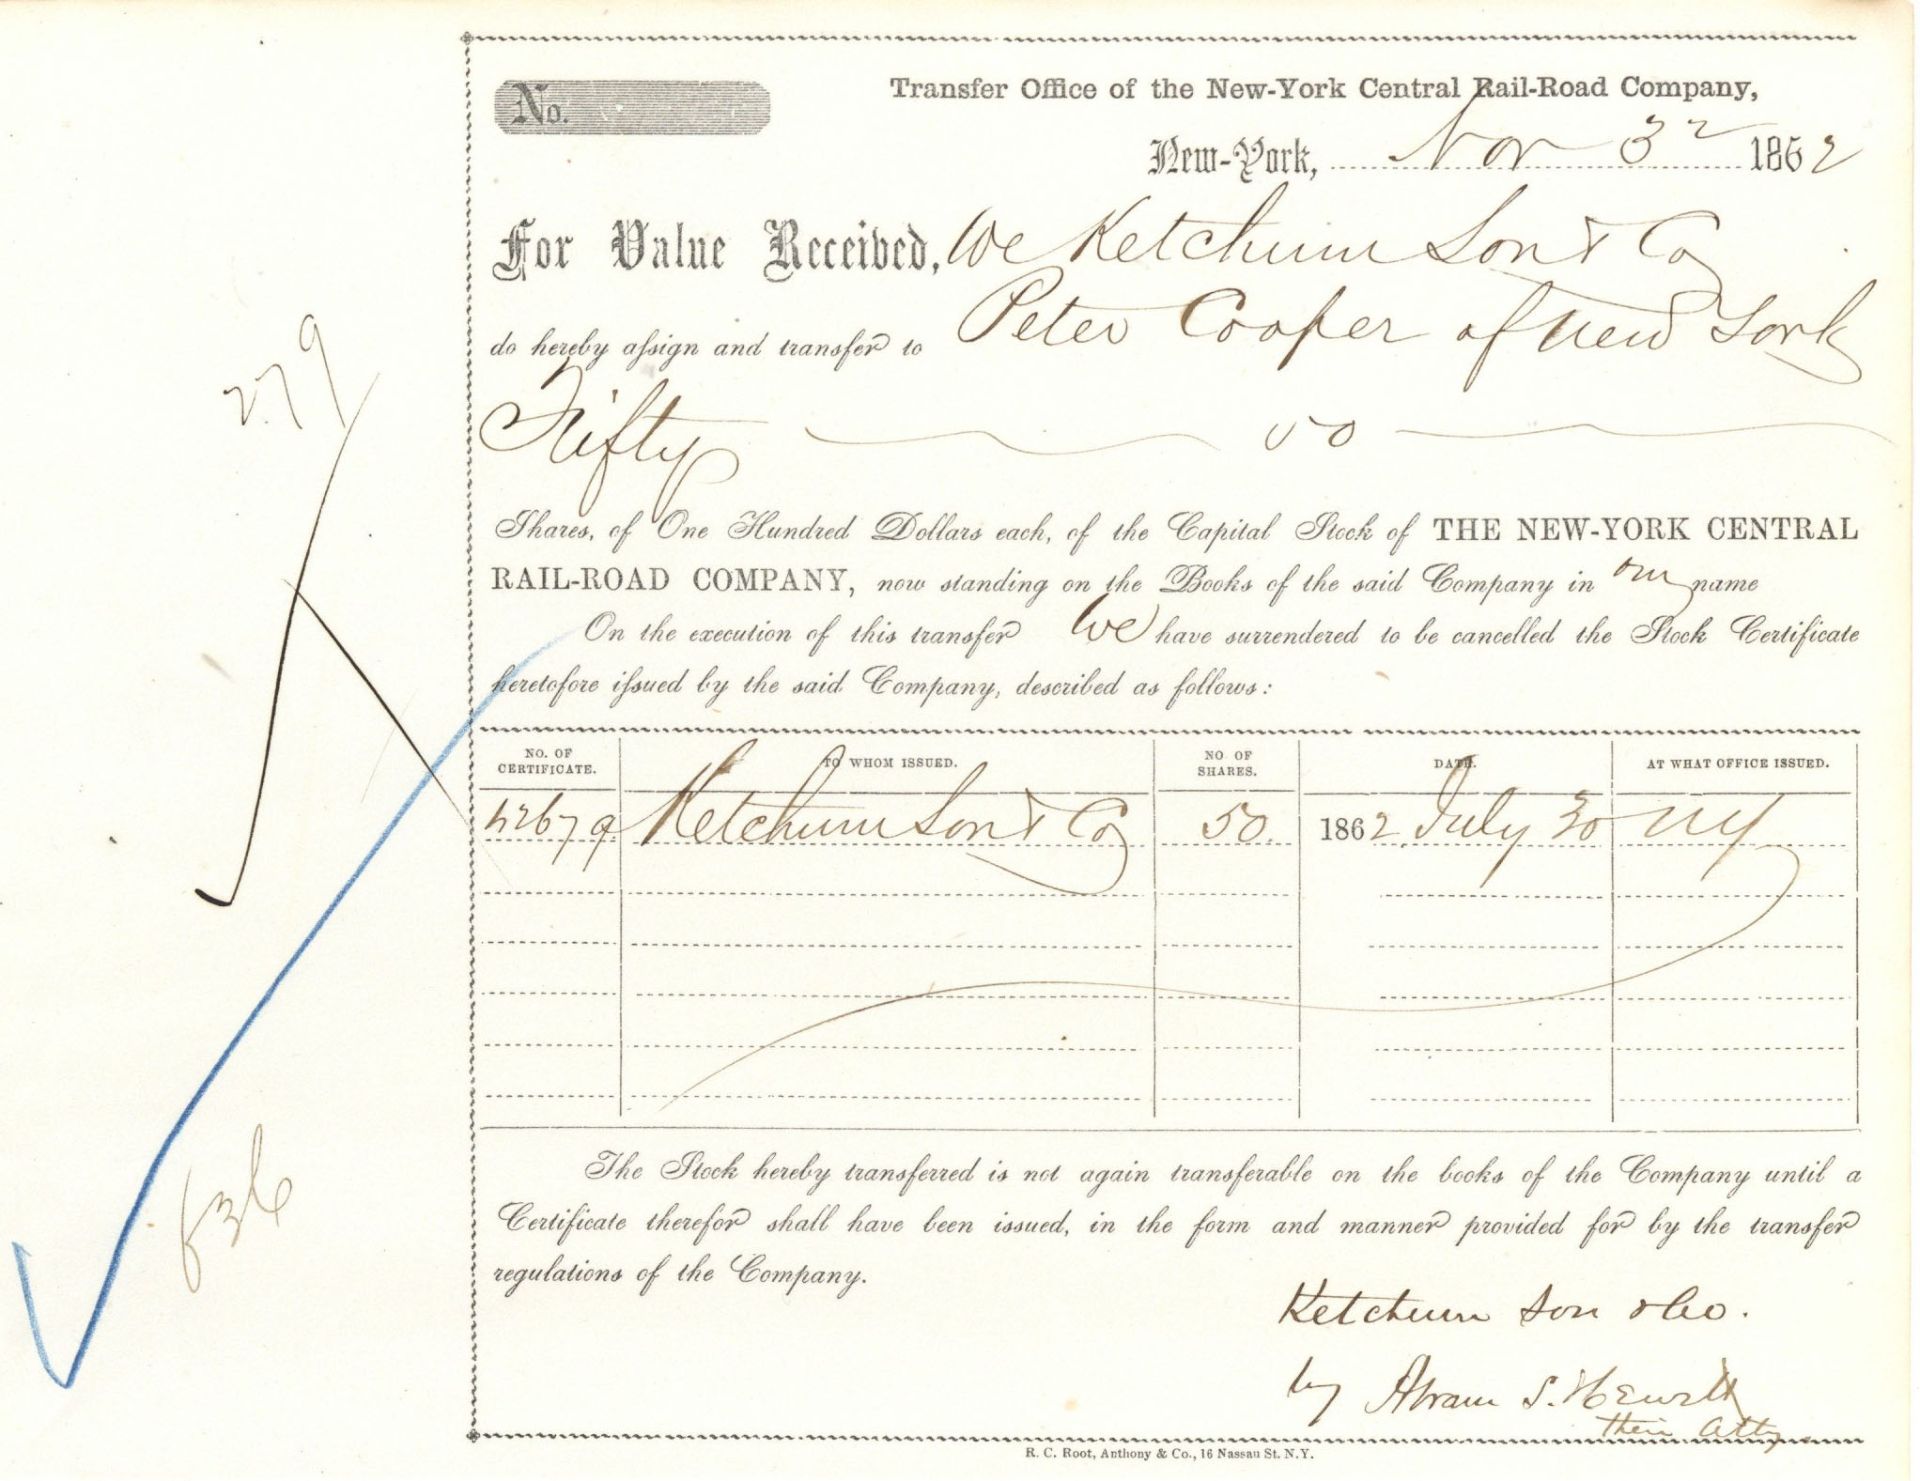 No.
Transfer Office of the New-York Central Rail-Road Company,
New-York, Nov 3 1862
For Value Received, We Ketchum Son & Co
do hereby assign and transfer to Peter Cooper of New York
Fifty 50
Shares, of One Hundred Dollars each, of the Capital Stock of THE NEW-YORK CENTRAL
RAIL-ROAD COMPANY, now standing on the Books of the said Company in our name
On the execution of this transfer We have surrendered to be cancelled the Stock Certificate
heretofore issued by the said Company, described as follows:
NO. OF CERTIFICATE. TO WHOM ISSUED. NO. OF SHARES. DATE. AT WHAT OFFICE ISSUED.
Ketchum Son & Co 50. 1862 July 30 NY
The Stock hereby transferred is not again transferable on the books of the Company until a
Certificate therefor shall have been issued, in the form and manner provided for by the transfer
regulations of the Company.
Ketchum Son & Co.
by Abram S. Hewitt
their atty.
R. C. Root, Anthony & Co., 16 Nassau St. N.Y.
279
636